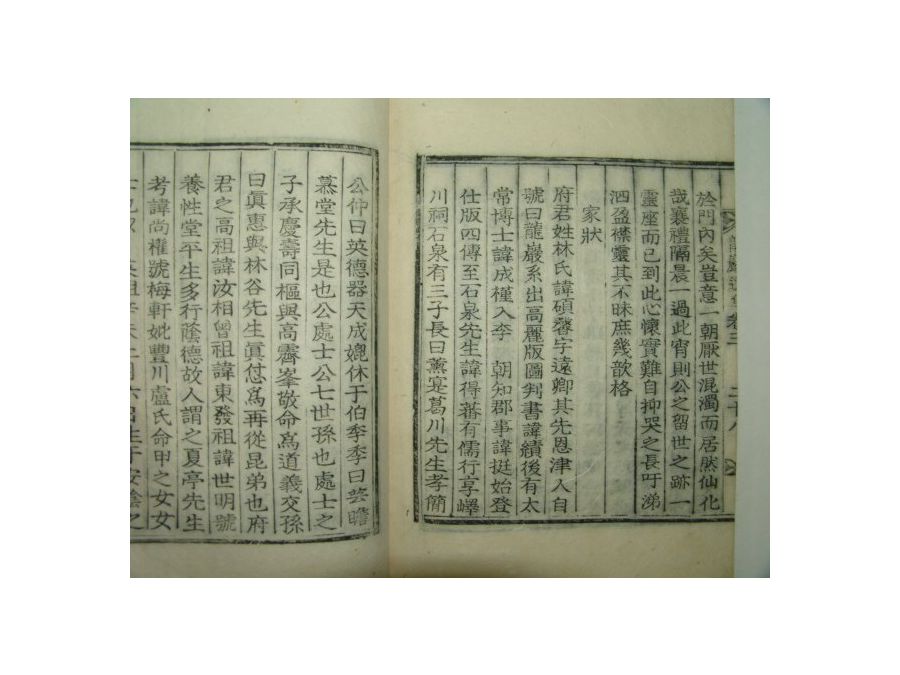 卷三
於門內矣豈意一朝厭世混濁而居然仙化
哉襄禮隔晨一過此宵則公之留世之跡一
靈座而已到此心懷實難自抑哭之長吁涕
泗盈襟靈其不昧庶幾歆格
家狀
府君姓林氏諱碩馨字遠卿其先恩津人自
號曰龍巖系出高麗版圖判書諱績後有太
常博士諱成槿入李 朝知郡事諱挺始登
仕版四傳至石泉先生諱得蕃有儒行享嶧
川祠石泉有三子長曰薰寔葛川先生孝簡
公仲曰英德器天成媲休于伯季季曰芸瞻
慕堂先生是也公處士公七世孫也處士之
子承慶壽同樞與高霽峯敬命爲道義交孫
曰眞惠與林谷先生眞怤爲再從昆弟也府
君之高祖諱汝相曾祖諱東發祖諱世明號
養性堂平生多行蔭德故人謂之夏亭先生
考諱尚權號梅軒妣豐川盧氏命甲之女女